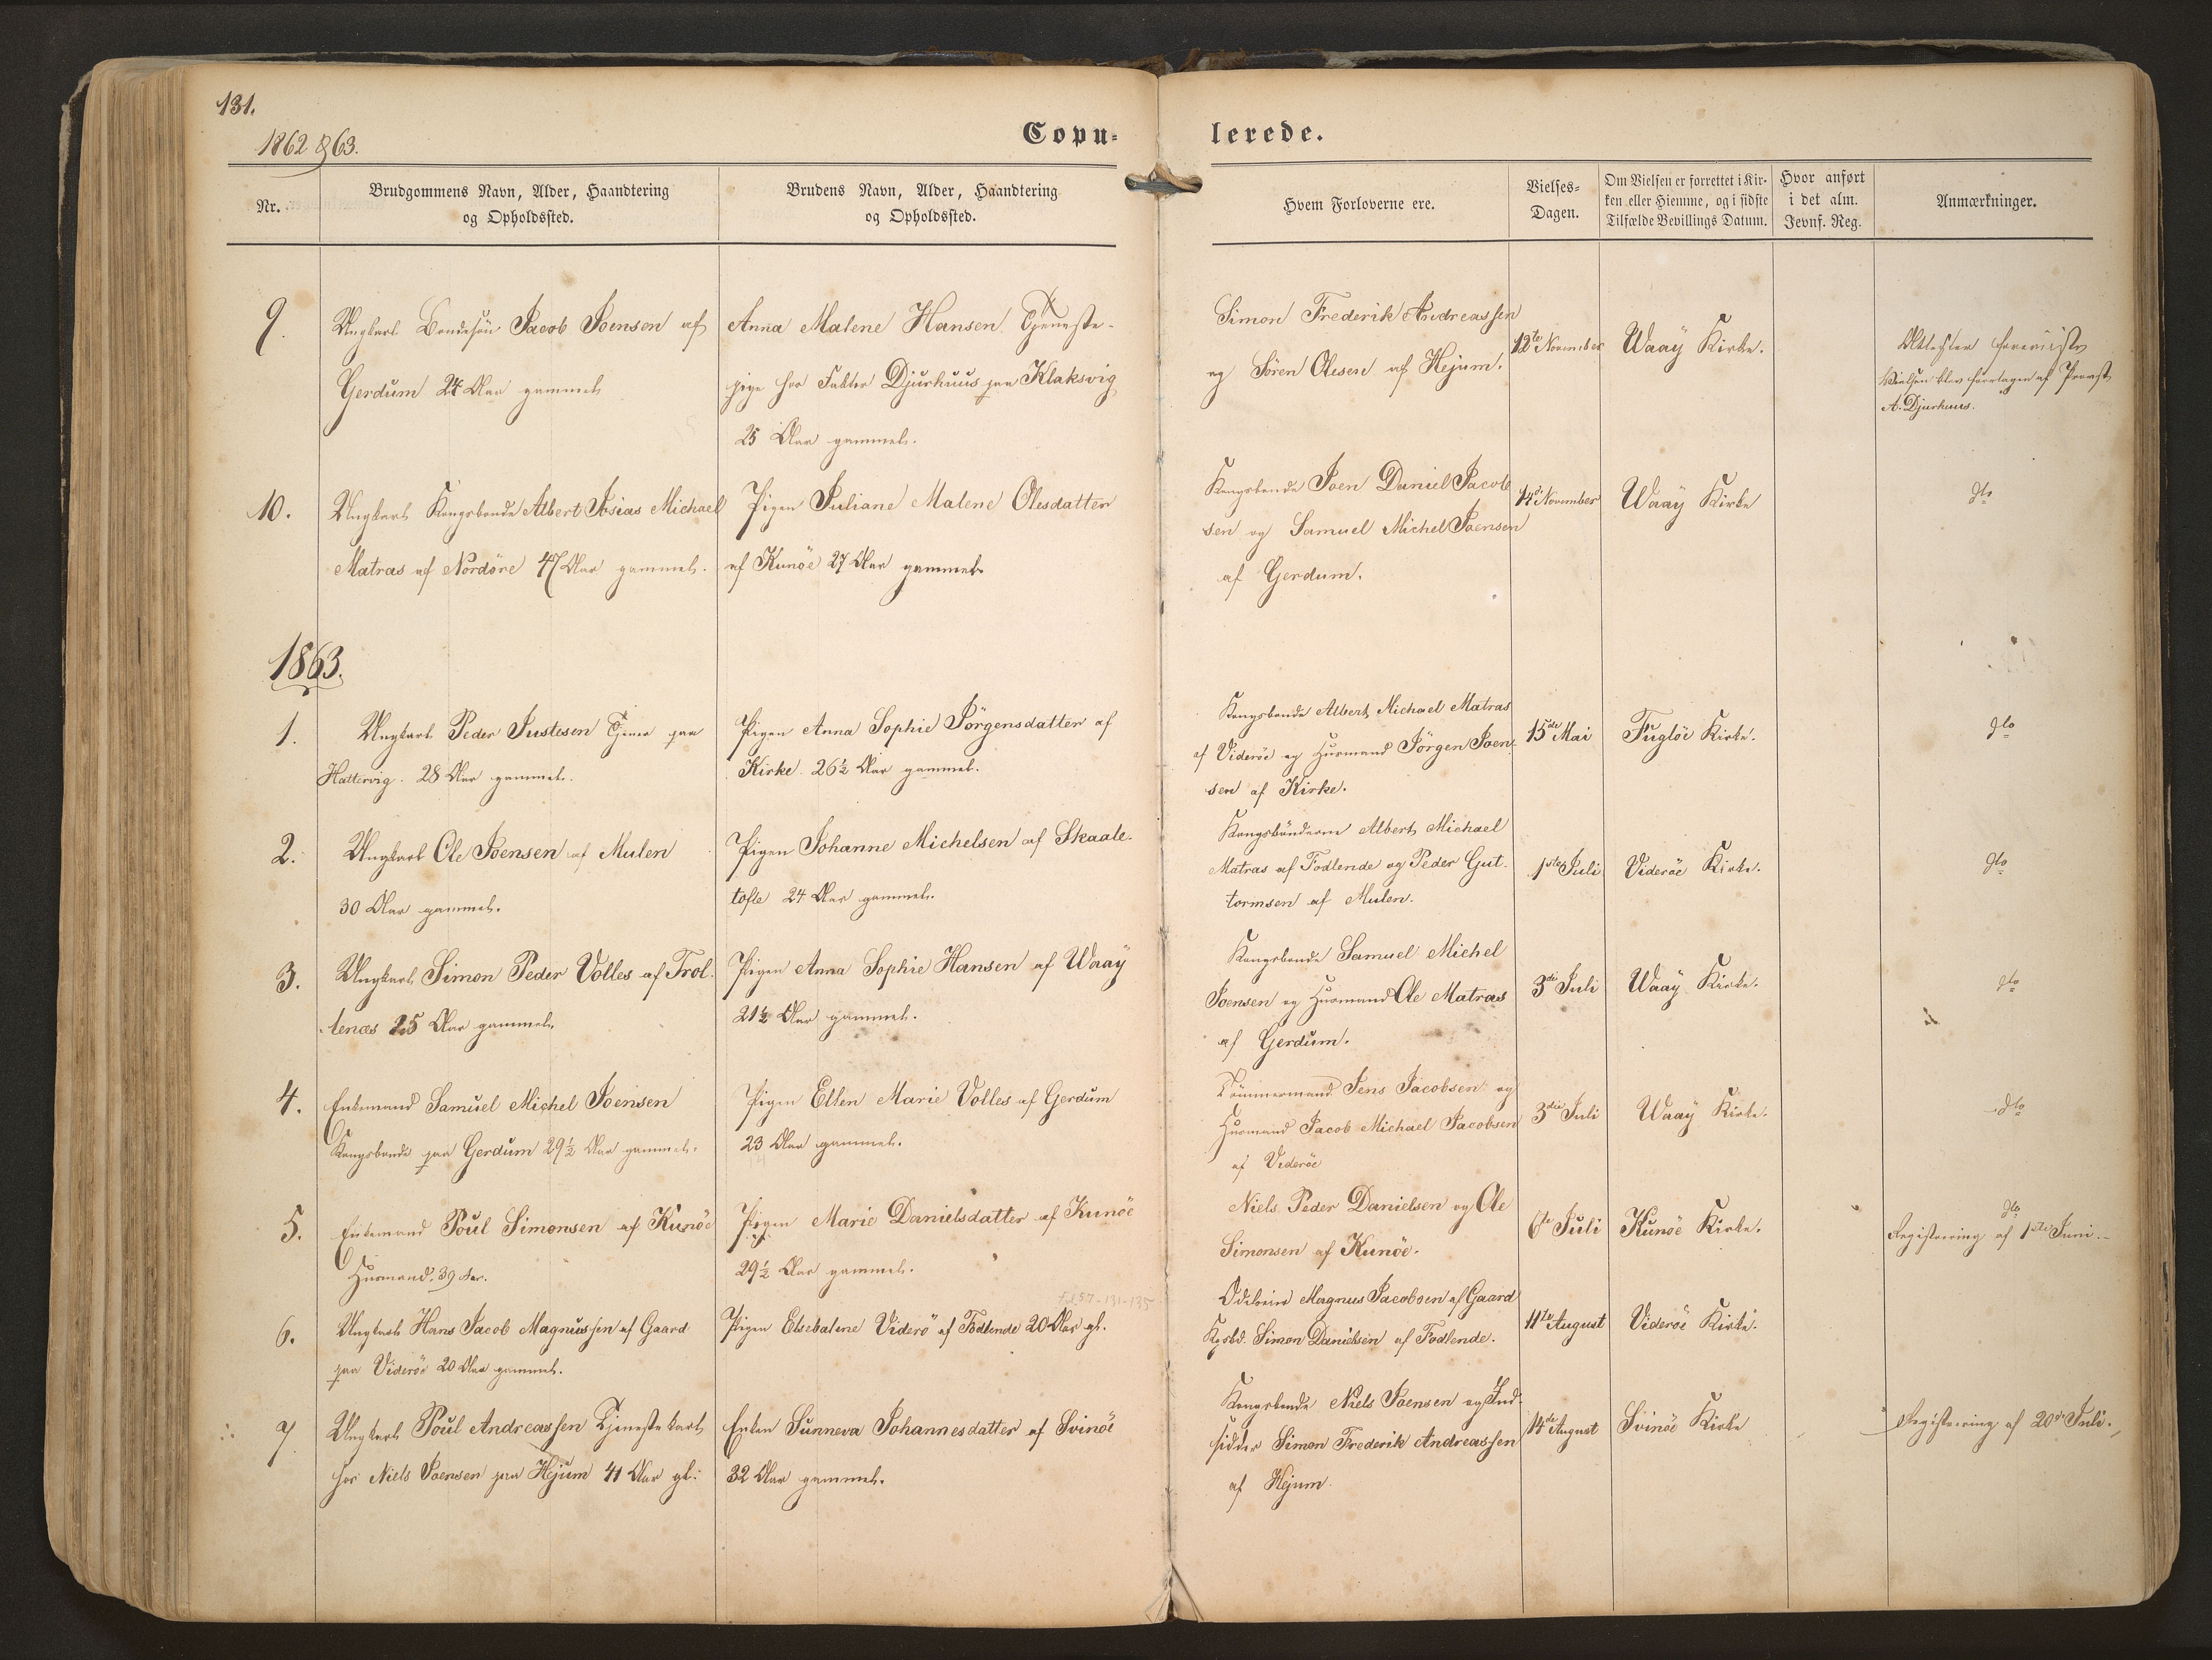 131.
1862 & 63.
Copu-
lerede.
Nr.
Brudgommens Navn, Alder, Haandtering
og Opholdssted.
Brudens Navn, Alder, Haandtering
og Opholdssted.
Hvem Forloverne ere.
Vielses-
Dagen.
Om Vielsen er forrettet i Kir-
ken eller Hiemme, og i sidste
Tilfælde Bevillings Datum.
Hvor anført
i det alm.
Jevnf. Reg.
Anmærkninger.
9.
Ungkarl Bondesøn Jacob Joensen af
Gerdum 24 Aar gammel
Anna Malene Hansen Tjeneste-
pige hos Faktor Djurhuus paa Klaksvig
25 Aar gammel.
Simon Frederik Andreassen
og Sören Olesen af Hejum.
12te November
Waaÿ Kirke.
Attester foreviiste
Vielsen blev foretagen af Provst
A. Djurhuus.
10.
Ungkarl Kongsbonde Albert Josias Michael
Matras af Nordöre 47 Aar gammel.
Pigen Juliane Malene Olesdatter
af Kunöe 27 Aar gammel.
Kongsbonde Joen Daniel Jacob
sen og Samuel Michel Joensen
af Gerdum.
14de November
Waaÿ Kirke
dto
1863.
1.
Ungkarl Peder Justesen Tjener paa
Hattervig. 28 Aar gammel.
Pigen Anna Sophie Jörgensdatter af
Kirke. 26½ Aar gammel.
Kongsbonde Albert Michael Matras
af Viderøe og Husmand Jörgen Joen-
sen af Kirke.
15de Mai
Fuglöe Kirke.
dto
2.
Ungkarl Ole Joensen af Mulen
30 Aar gammel.
Pigen Johanne Michelsen af Skaale-
tofte 24 Aar gammel.
Kongsbönderne Albert Michael
Matras af Fodlende og Peder Gut-
tormsen af Mulen.
1ste Juli
Viderøe Kirke.
dto
3.
Ungkarl Simon Peder Volles af Trol-
lenæs 25 Aar gammel.
Pigen Anna Sophie Hansen af Waaÿ
21½ Aar gammel.
Kongsbonde Samuel Michel
Joensen og Husmand Ole Matras
af Gerdum.
3die Juli
Waaÿ Kirke.
dto
4.
Enkemand Samuel Michel Joensen
Kongsbonde paa Gerdum 29½ Aar gammel.
Pigen Ellen Marie Volles af Gerdum
23 Aar gammel.
Tömmermand Jens Jacobsen og
Husmand Jacob Michael Jacobsen
af Viderøe
3die Juli
Waaÿ Kirke.
dto
5.
Enkemand Poul Simonsen af Kunöe
Husmand. 39 Aar.
Pigen Marie Danielsdatter af Kunöe
29½ Aar gammel.
Niels Peder Danielsen og Ole
Simonsen af Kunöe.
6te Juli
Kunöe Kirke.
dto
Registrering af 1ste Juni.
6.
Ungkarl Hans Jacob Magnussen af Gaard
paa Viderøe 20 Aar gammel.
Pigen Elsebalene Viderö af Fodlende 20 Aar gl.
Magnus Jacobsen af Gaard
Kgsbd. Simon Danielsen af Fodlende.
11te August
Viderøe Kirke.
7
Ungkarl Poul Andreassen Tjenestekarl
hos Niels Joensen paa Hejum 41 Aar gl.
Enken Sunneva Johannesdatter af Svinöe
32 Aar gammel.
Kongsbonde Niels Joensen og Ind-
sidder Simon Frederik Andreassen
af Hejum.
14de August
Svinöe Kirke
Registrering af 20de Juli.